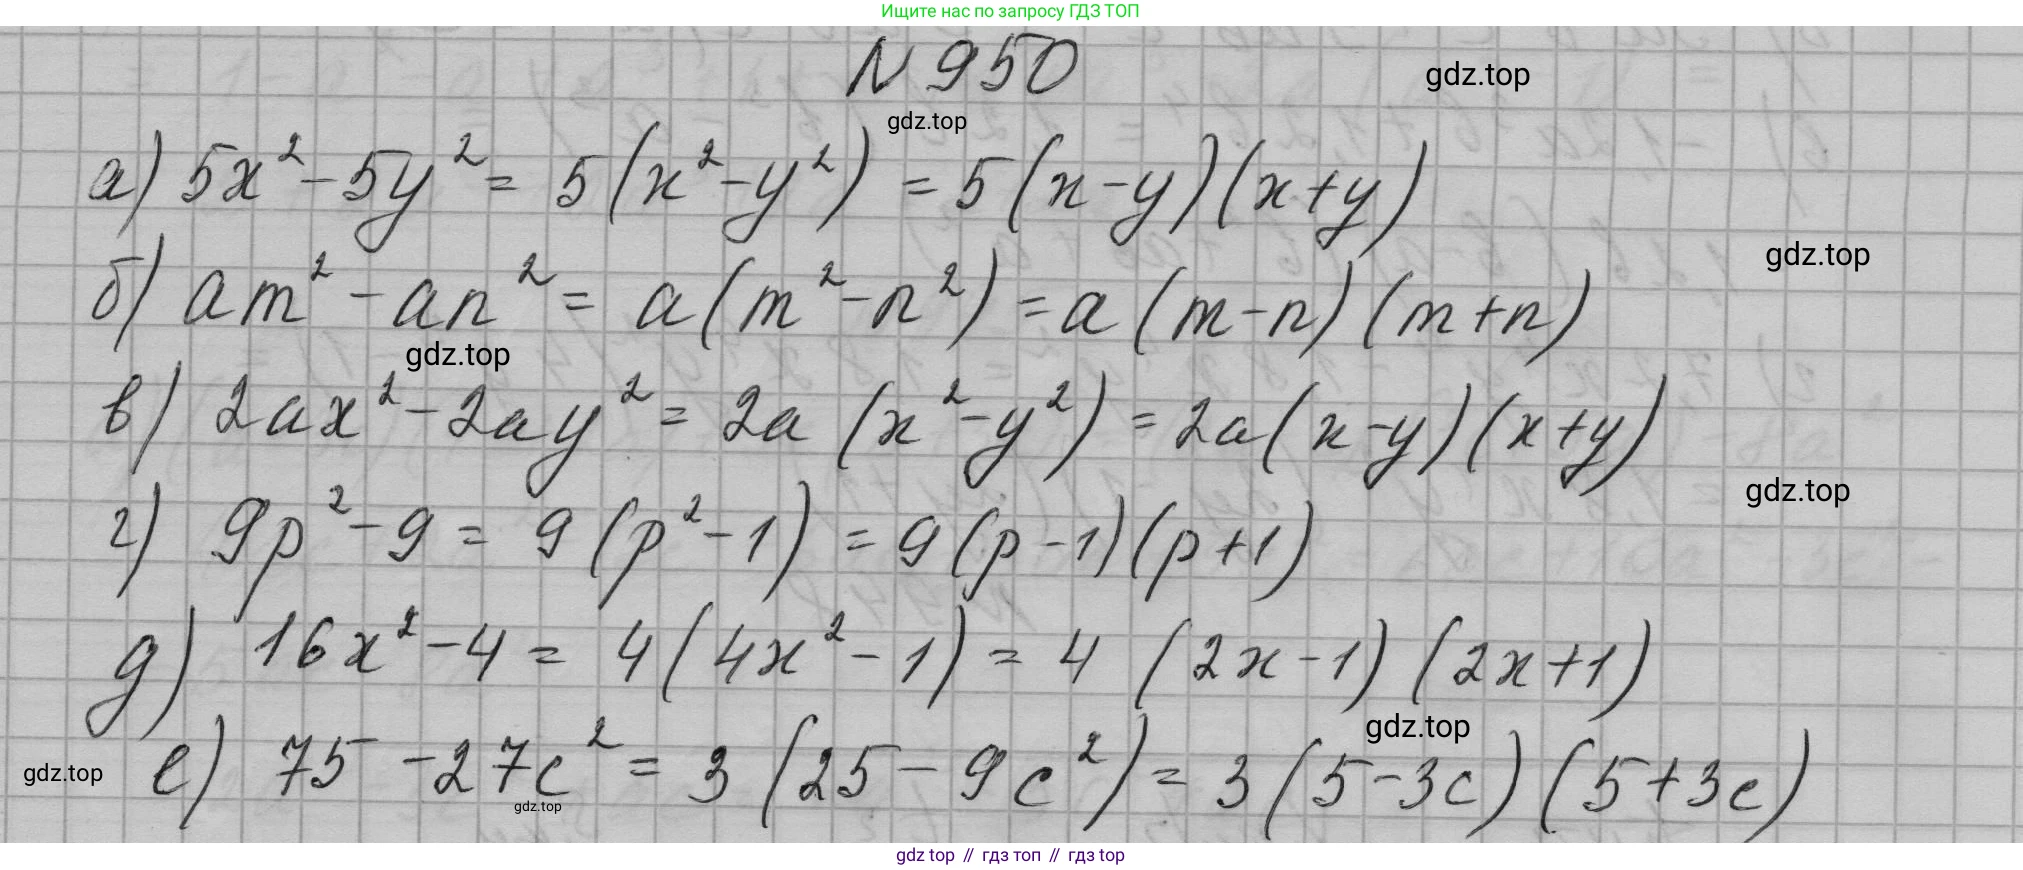 Ищите нас по запросу ГДЗ ТОП
N 950
gdz.top
gdz.top
а) 5x² - 5y² = 5(x² - y²) = 5(x - y)(x + y)
б) am² - an² = a(m² - n²) = a(m - n)(m + n)
gdz.top
gdz.top
в) 2ax² - 2ay² = 2a(x² - y²) = 2a(x - y)(x + y)
gdz.top
г) 9p² - 9 = 9(p² - 1) = 9(p - 1)(p + 1)
д) 16x² - 4 = 4(4x² - 1) = 4(2x - 1)(2x + 1)
gdz.top
е) 75 - 27c² = 3(25 - 9c²) = 3(5 - 3c)(5 + 3c)
gdz.top
gdz.top
gdz top // гдз топ // гдз top